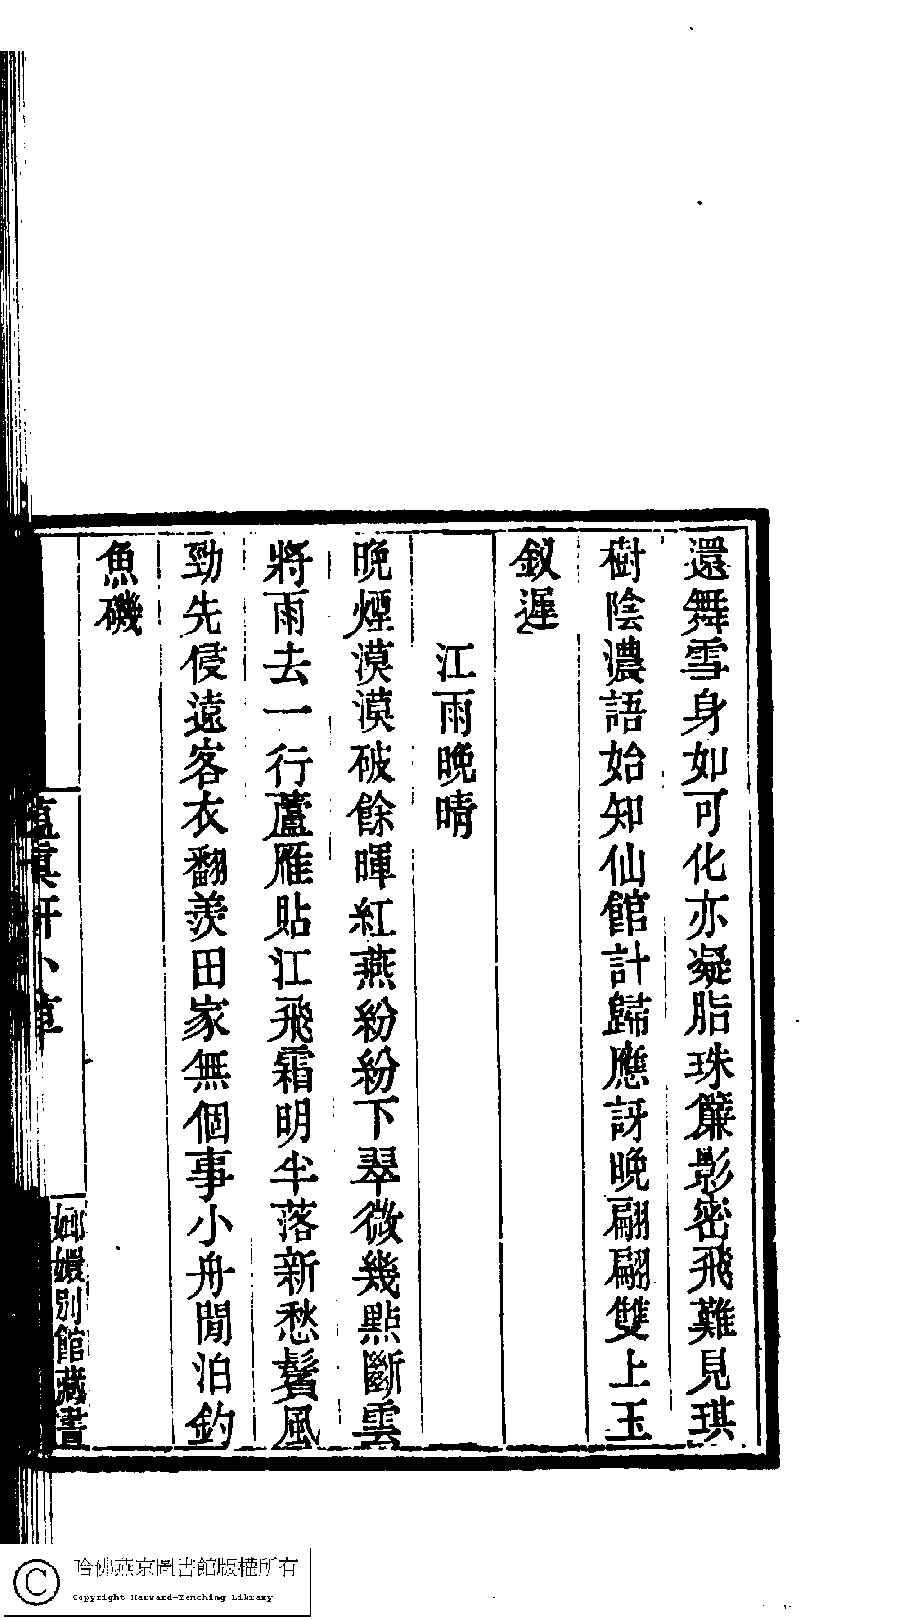 還舞雪身如可化亦凝脂珠簾影密飛難見琪
樹陰濃語始知仙館計歸應訝晚翩翩雙上玉
釵遲
江雨晚晴
晚煙漠漠破餘暉紅燕紛紛下翠微幾點斷雲
將雨去一行蘆雁貼江飛霜明半落新愁鬢風
勁先侵遠客衣翻羨田家無個事小舟閒泊釣
魚磯
軒小草
嫏嬛別館藏書
哈佛燕京圖書館版權所有
Copyright Harvard-Yenching Library